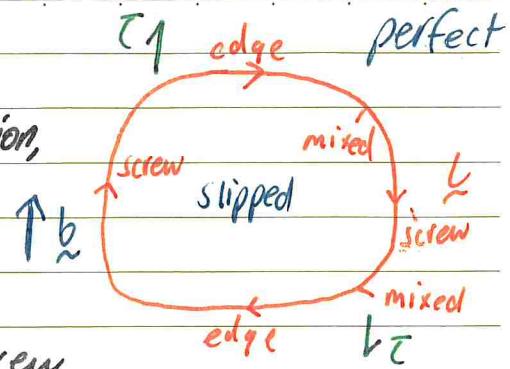 τ edge perfect
ion,
mixed
screw
slipped
l
b
screw
mixed
edge
τ
ew